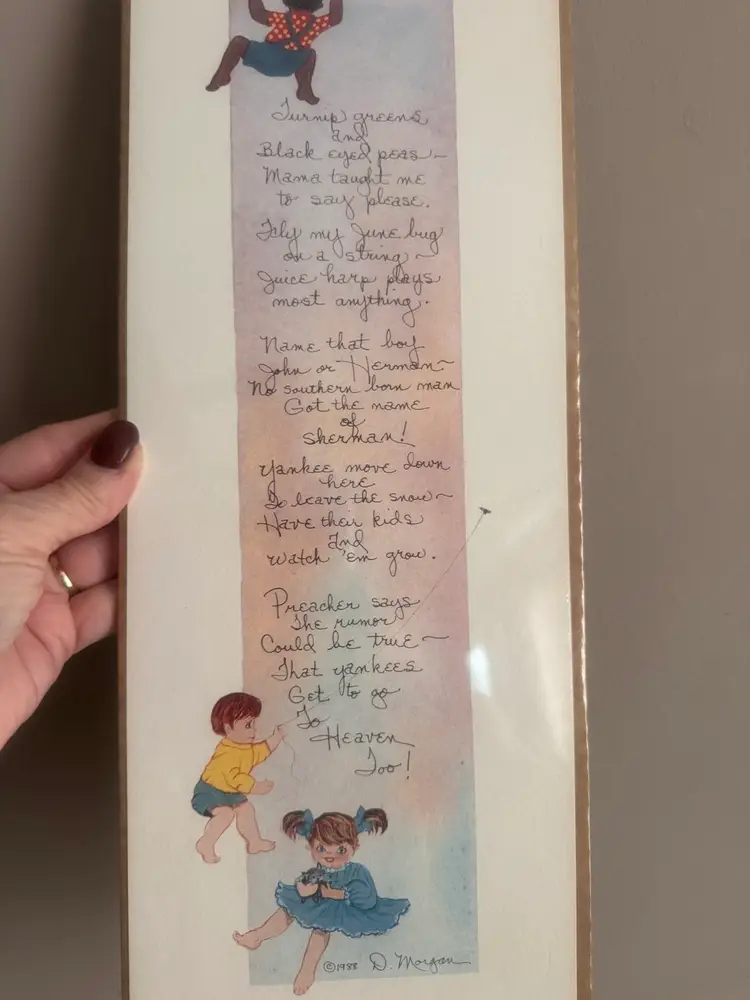 Turnip greens
and
Black eyed peas~
Mama taught me
to say please.
Fly my June bug
on a string~
Juice harp plays
most anything.
Name that boy
John or Herman~
No southern born man
Got the name
of
Sherman!
Yankee move down
here
To leave the snow~
Have their kids
and
watch 'em grow.
Preacher says
The rumor
Could be true~
That yankees
Get to go
To
Heaven
Too!
©1988 D. Morgan